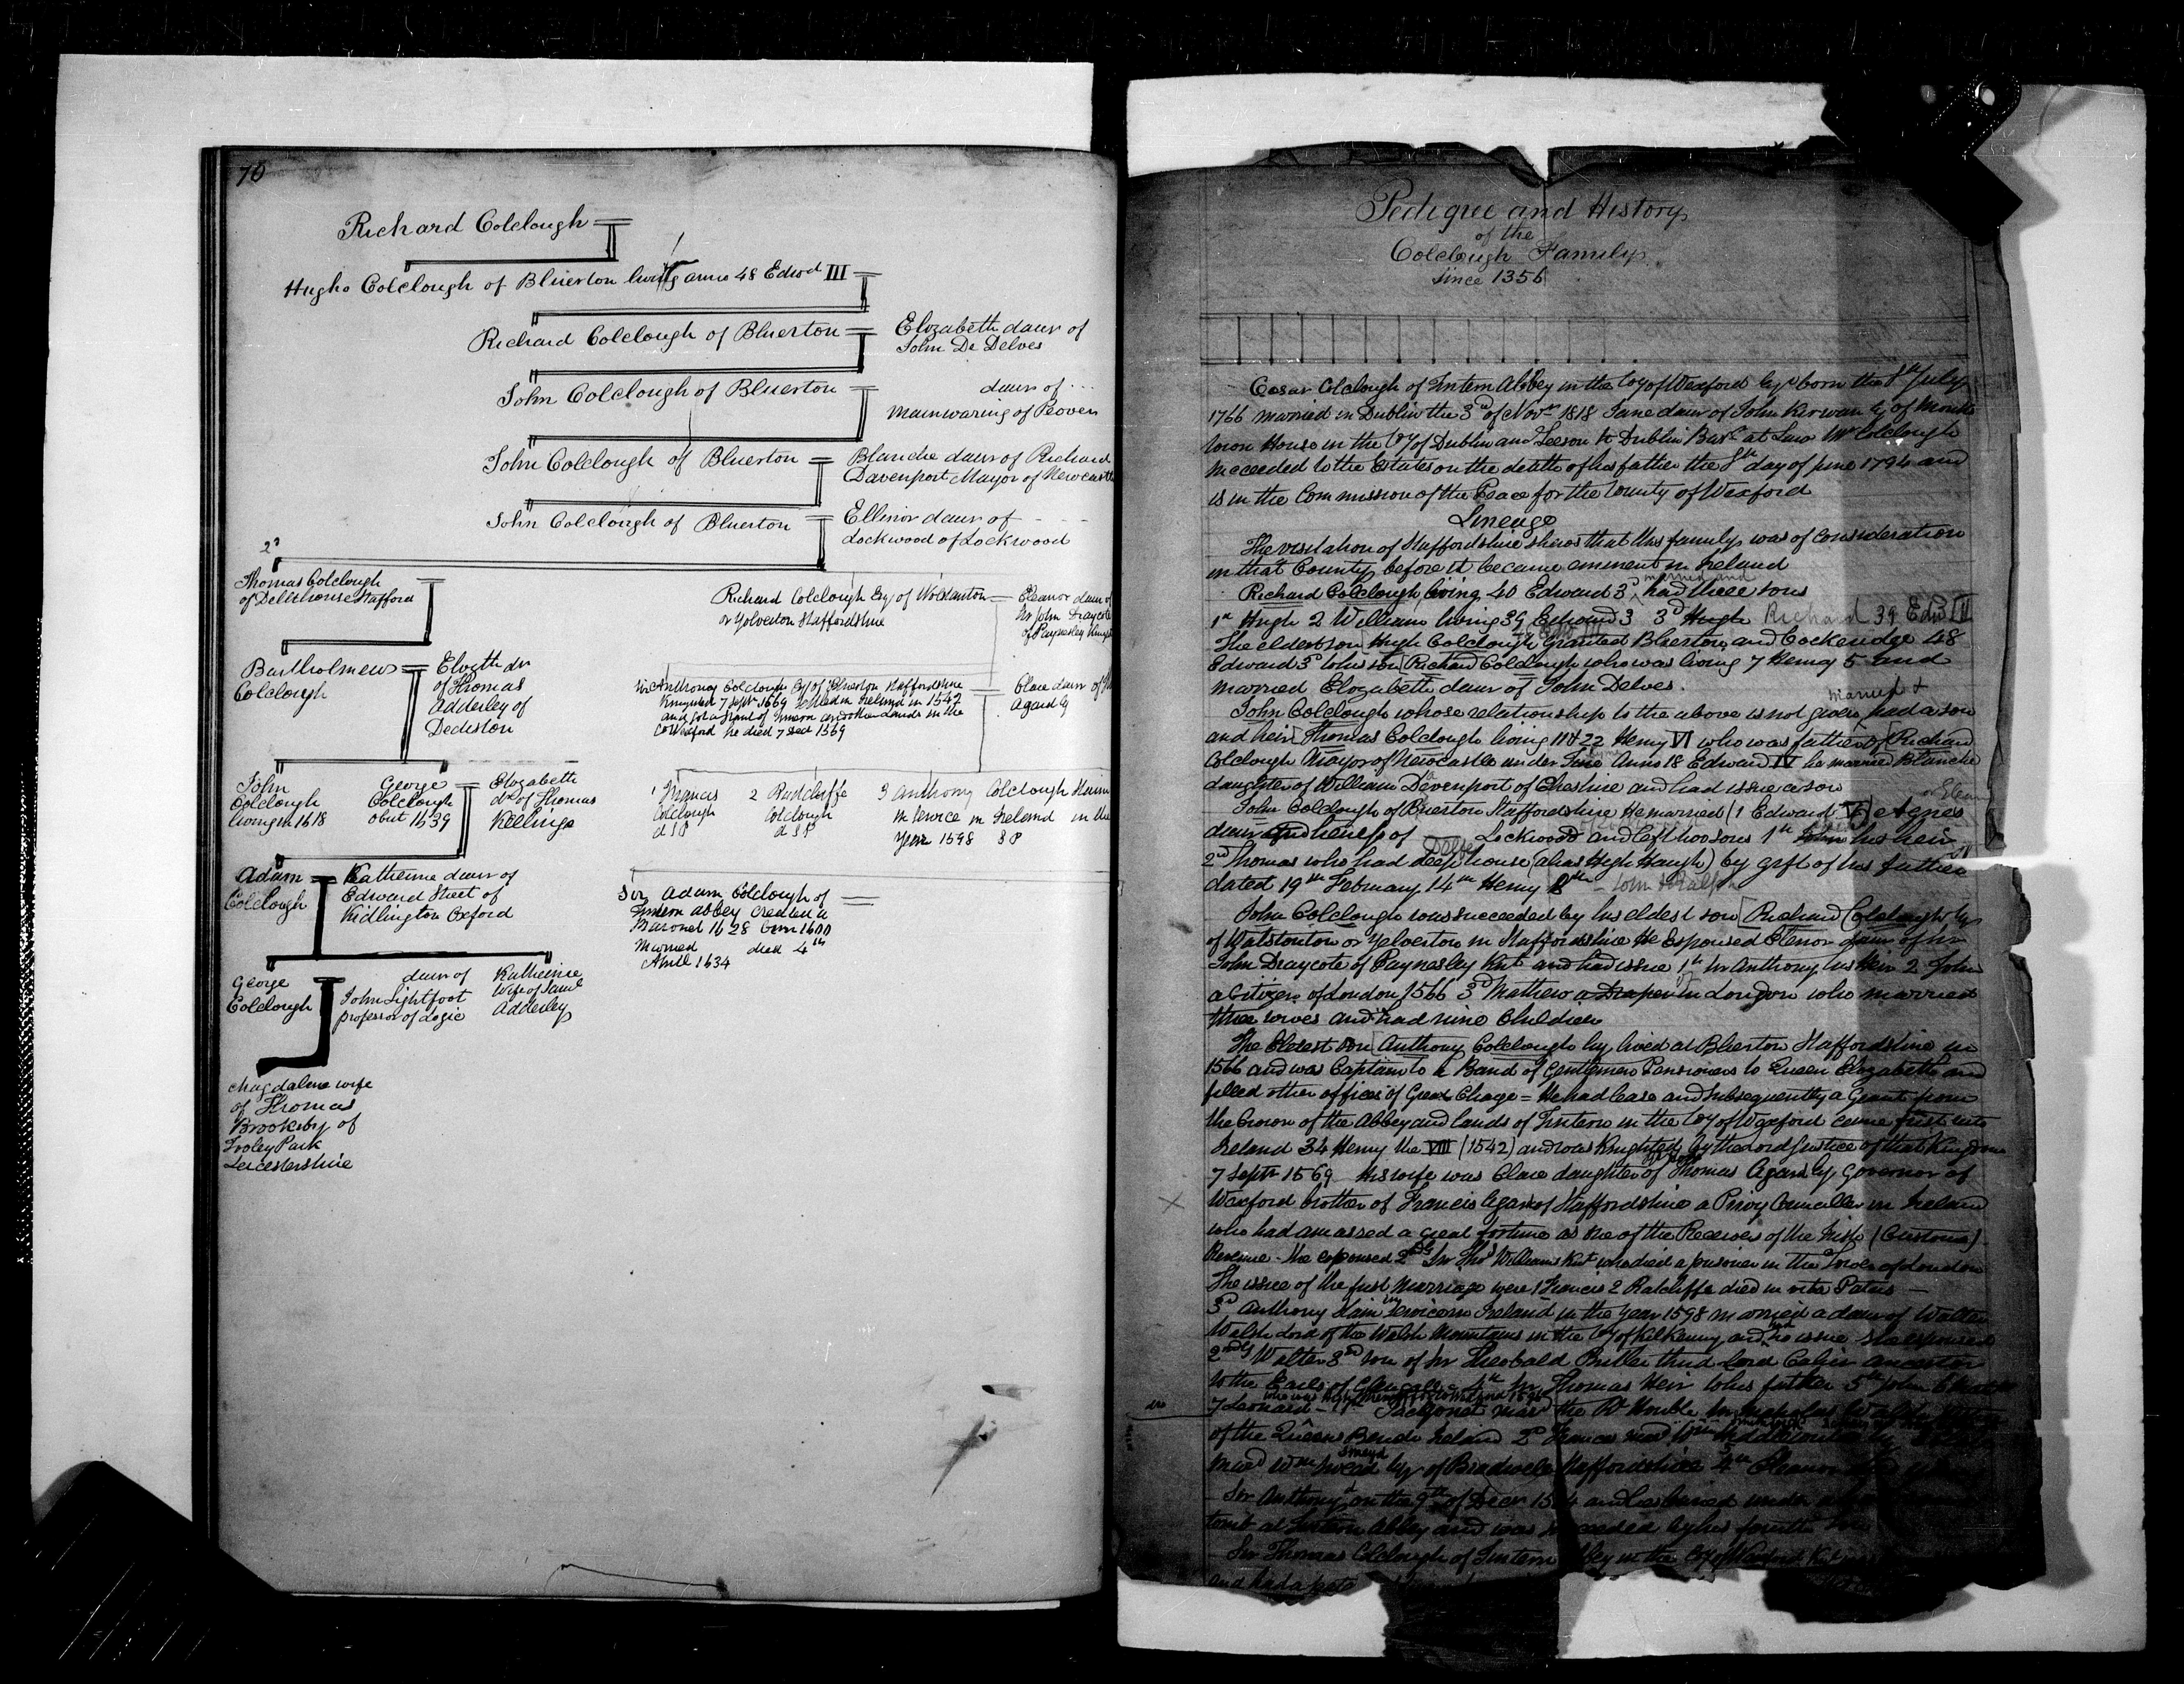 70
Richard Colclough
Hugho Colclough of Bluerton living anno 48 Edwd III
Richard Colclough of Bluerton
Elizabeth daur of
John De Delves
John Colclough of Bluerton
daur of ...
Mainwaring of Peover
John Colclough of Bluerton
Blanche daur of Richard
Davenport Mayor of Newcastle
John Colclough of Bluerton
Ellinor daur of - -
Lockwood of Lockwood
2d
Thomas Colclough
of Delfhouse Stafford
Richard Colclough Esq of Wolstanton
or Yolverton Staffordshire
Eleanor daur of
Sir John Draycote
of Paynesley Knight
Bartholmew
Colclough
Elizth dr
of Thomas
Adderley of
Dedeston
Sir Anthony Colclough Esq of Bluerton Staffordshire
Knighted 7 Sept 1569 settled in Ireland in 1542
and got a grant of Tintern and other lands in the
Co Wexford he died 7 Decr 1569
Clare daur of
Agard Esq
John
Colclough
living in 1618
George
Colclough
obiit 1639
Elizabeth
dr of Thomas
Kellinge
1 Francis
Colclough
d S P
2 Ratcliffe
Colclough
d S P
3 Anthony Colclough slain
in service in Ireland in the
year 1598 S P
Adam
Colclough
Katherine daur of
Edward Street of
Kidlington Oxford
Sir Adam Colclough of
Tintern Abbey created a
Baronet 1628 born 1600
Married died 4th
April 1634
George
Colclough
daur of
John Lightfoot
professor of Logic
Katherine
Wife of Saml
Adderley
Magdalene wife
of Thomas
Brooksby of
Froley Park
Leicestershire
Pedigree and History
of the
Colclough Family
since 1356
Cesar Colclough of Tintern Abbey in the Coy of Wexford Esqr born the 8th July
1766 married in Dublin the 3rd of Novr 1818 Jane daur of John Kirwan Esq of Monks
town House in the Coy of Dublin and Leeson St Dublin Barr at Law Mr Colclough
succeeded to the Estates on the death of his father the 8th day of June 1794 and
is in the Commission of the Peace for the County of Wexford
Lineage
The visitation of Staffordshire shews that this family was of consideration
in that County before it became eminent in Ireland
Richard Colclough living 40 Edward 3d married and had three sons
1st Hugh 2 William living 39 Edward 3 3d Hugh Richard 39 Ed III
The eldest son Hugh Colclough granted Bluerton and Cockeridge 48
Edward 3d to his son Richard Colclough who was living 7 Henry 5 and
married Elizabeth daur of John Delves.
John Colclough whose relationship to the above is not given married & had a son
and heir Thomas Colclough living 11 & 22 Henry VI who was father of Richard
Colclough Mayor of Newcastle under Line Anno 18 Edward IV he married Blanche
daughter of William Davenport of Cheshire and had issue a son
John Colclough of Bluerton Staffordshire He married (1 Edward V) Agnes
or Elenor
daur and heiress of Lockwood and left two sons 1st John his heir
2nd Thomas who had Delfe house (alias High Haugh) by gift of his father
dated 19th February 14th Henry 8th
John Colclough was succeeded by his eldest son Richard Colclough Esq
of Wolstonton or Yelverton in Staffordshire He Espoused Elenor daur of Sir
John Draycote of Paynesley Knt and had issue 1st Sir Anthony his Heir 2 John
a Citizen of London 1566 3d Mathew a Draper in London who married
three wives and had nine Children
The Eldest son Anthony Colclough Esq lived at Bluerton Staffordshire in
1566 and was Captain to a Band of Gentlemen Pensioners to Queen Elizabeth and
filled other offices of Great Charge = He had lease and subsequently a Grant from
the Crown of the Abbey and lands of Tintern in the Coy of Wexford came first into
Ireland 34 Henry the VIII (1542) and was Knighted by the Lord Justice of that Kingdom
7 Septr 1569 His wife was Clare daughter of Thomas Agard Esq Governor of
Wexford brother of Francis Agard of Staffordshire a Privy Counceller in Ireland
who had amassed a great fortune as one of the Receivers of the Irish (Customs)
Revenue - She espoused 2dly Sir Thos Williams Knt who died a prisoner in the Tower of London
The issue of the first Marriage were 1 Francis 2 Ratcliffe died in vita Patris -
3d Anthony slain in service in Ireland in the year 1598 married a daur of Walter
Walsh Lord of the Walsh Mountains in the Coy of Kilkenny and had no issue She espoused
2ndly Walter 3rd son of Sir Theobald Butler third Lord Cahir ancestor
to the Earls of Glengall - 4th Sir Thomas Heir to his father 5th John
7 Leonard - 1st Jacquonet mard the Rt Honble Sir Nicholas Walsh
of the Queens Bench Ireland 2d Frances mard
mard Wm Sneyd Esq of Bradwell Staffordshire 4th Eleanor
Sir Anthony d on the 9th of Decr and lies buried under a
tomb at Tintern Abbey and was succeeded by his fourth Son
Sir Thomas Colclough of Tintern Abbey in the Coy of Wexford Knt